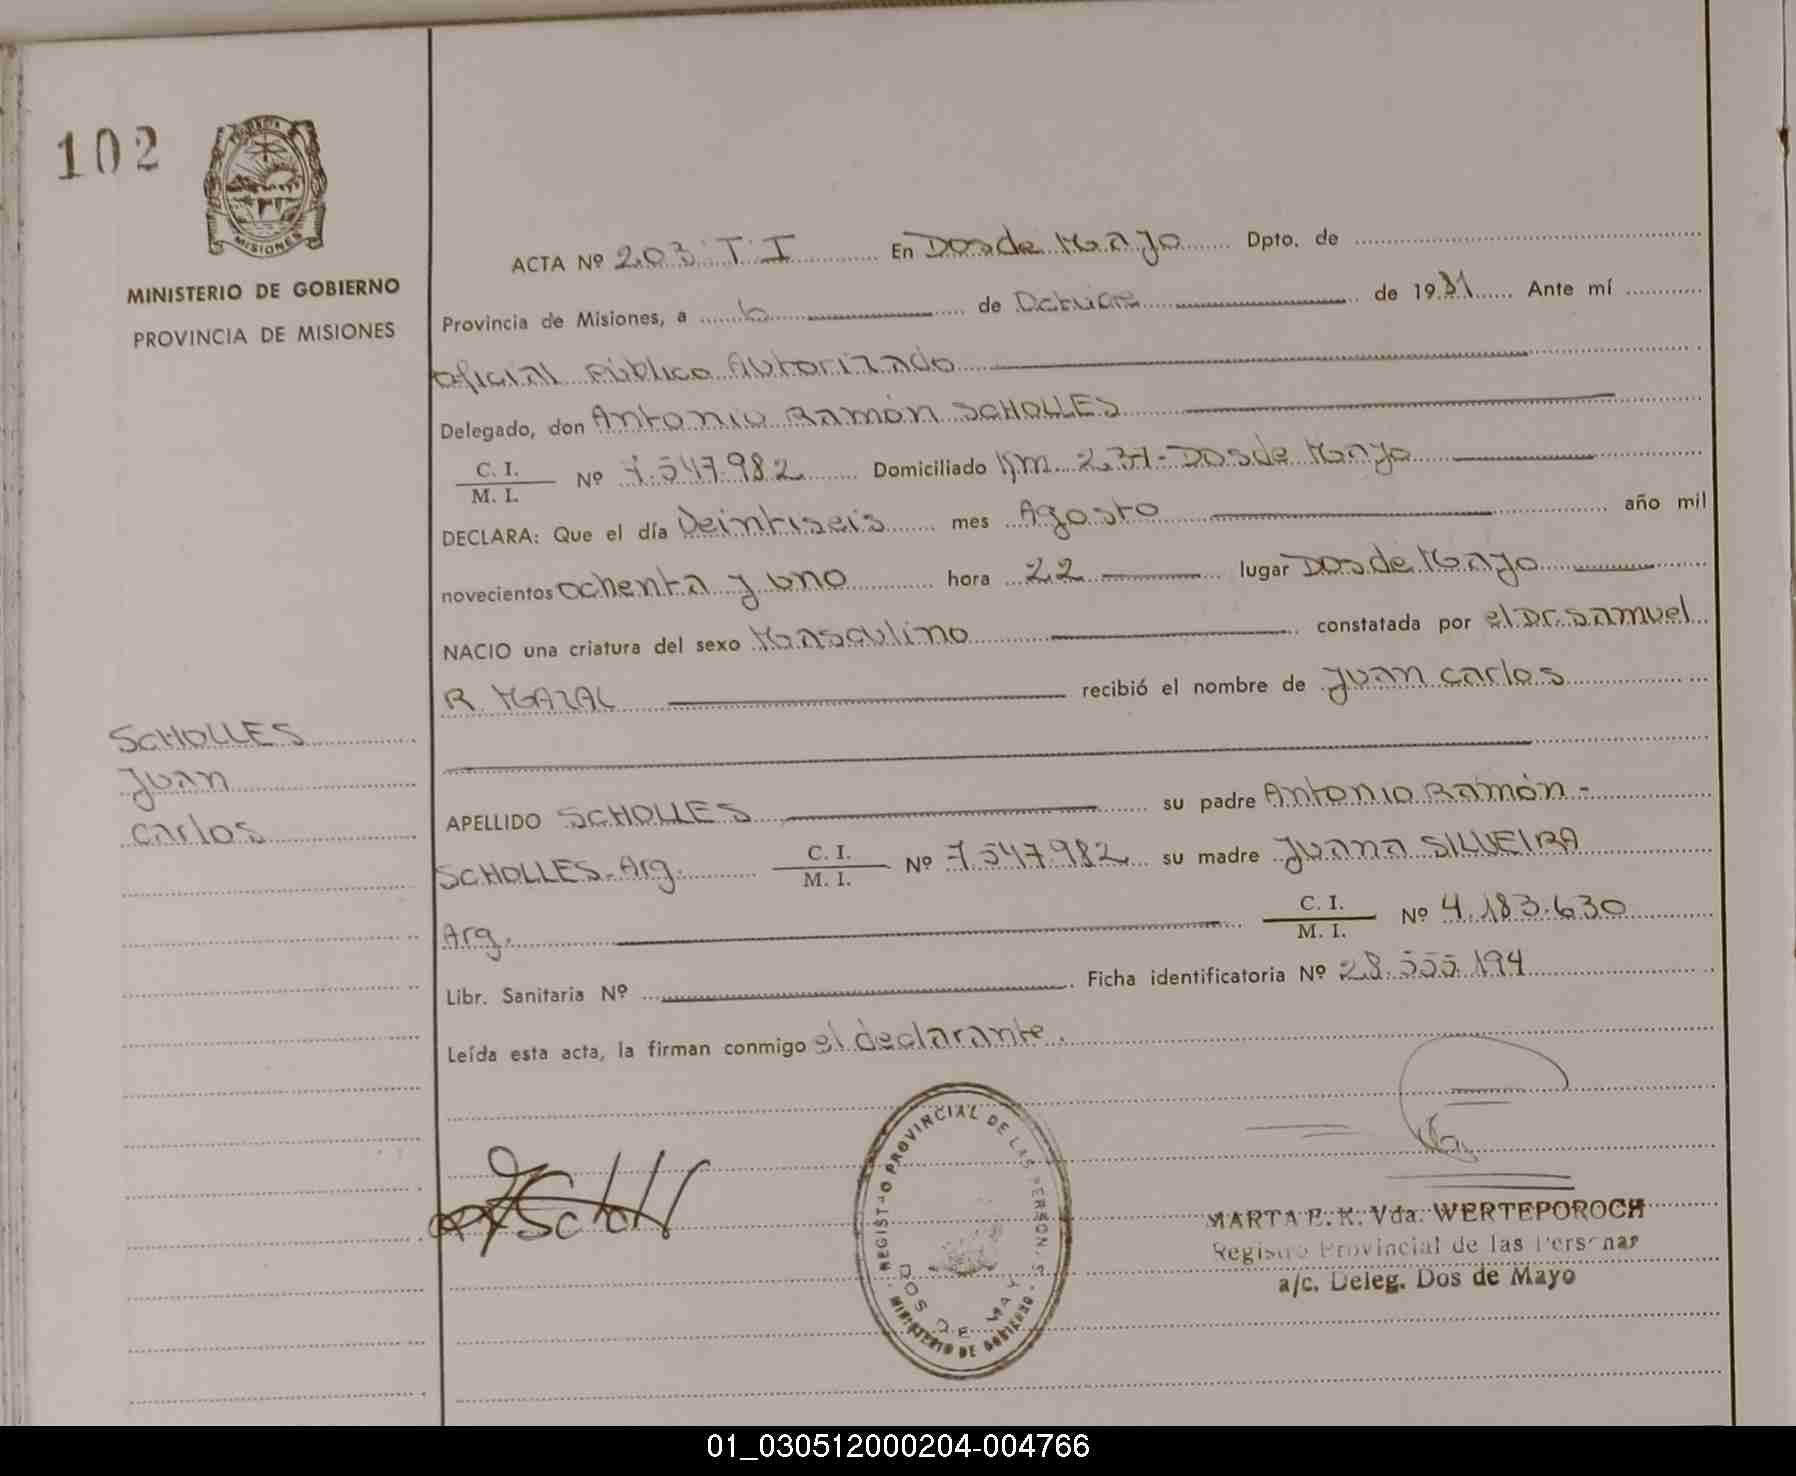 102
MISIONES
MINISTERIO DE GOBIERNO
PROVINCIA DE MISIONES
ACTA Nº 203 T I En Dos de Mayo Dpto. de
Provincia de Misiones, a 6 de Octubre de 1981 Ante mí
Oficial Público Autorizado
Delegado, don Antonio Ramón SCHOLLES
C. I.
M. I. Nº 7.547.982 Domiciliado Km. 237-Dos de Mayo
DECLARA: Que el día Veintiseis mes Agosto año mil
novecientos ochenta y uno hora 22 lugar Dos de Mayo
NACIO una criatura del sexo Masculino constatada por el Dr. Samuel
R. MAZAL recibió el nombre de Juan Carlos
SCHOLLES
Juan
Carlos
APELLIDO SCHOLLES su padre Antonio Ramón -
SCHOLLES-Arg. C. I. M. I. Nº 7.547.982 su madre Juana SILVEIRA
Arg. C. I. M. I. Nº 4.183.630
Libr. Sanitaria Nº Ficha identificatoria Nº 28.555.194
Leída esta acta, la firman conmigo el declarante.
REGISTRO PROVINCIAL DE LAS PERSONAS
DOS DE MAYO
MINISTERIO DE GOBIERNO
MARTA E. K. Vda. WERTEPOROCH
Registro Provincial de las Personas
a/c. Deleg. Dos de Mayo
01_030512000204-004766